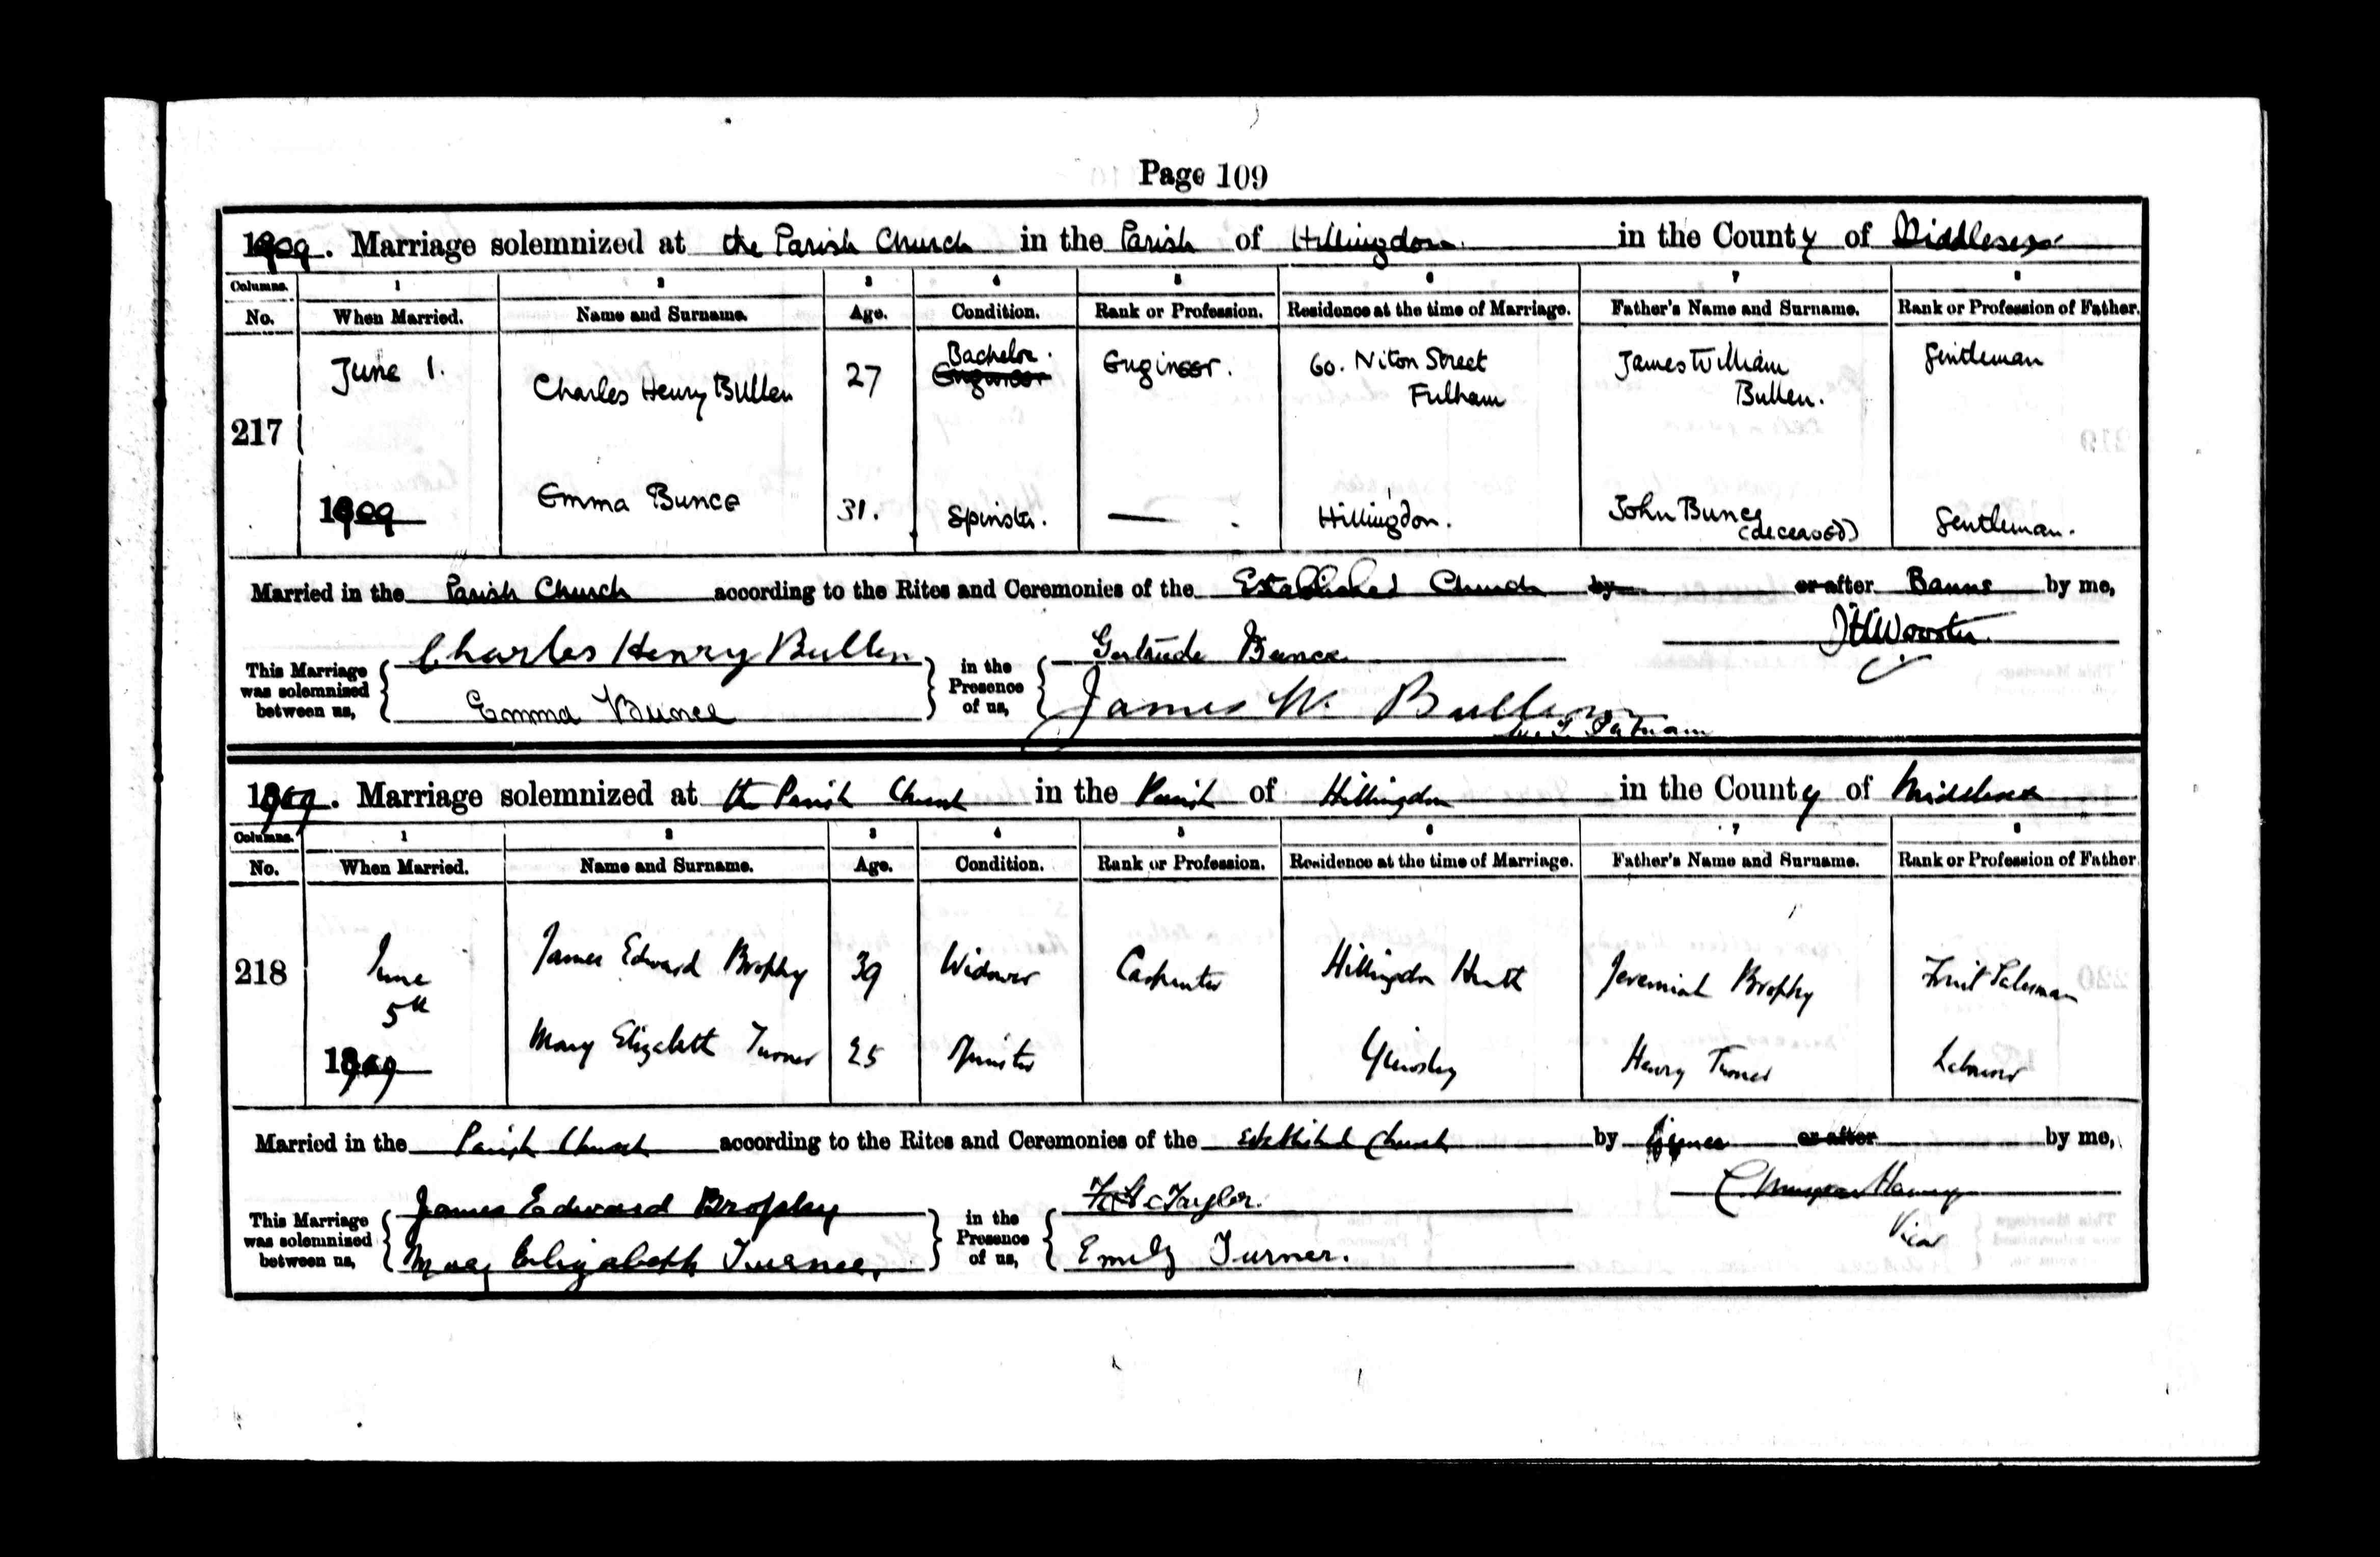 Page 109
1909. Marriage solemnized at the Parish Church in the Parish of Hillingdon in the County of Middlesex
Columns. 1 2 3 4 5 6 7 8
No. When Married. Name and Surname. Age. Condition. Rank or Profession. Residence at the time of Marriage. Father's Name and Surname. Rank or Profession of Father.
217 June 1. Charles Henry Bullen 27 Bachelor. Engineer Engineer. 60. Niton Street Fulham James William Bullen. Gentleman
1909 Emma Bunce 31. Spinster. — Hillingdon. John Bunce (deceased) Gentleman.
Married in the Parish Church according to the Rites and Ceremonies of the Established Church by or after Banns by me,
J H Wooster
This Marriage was solemnized between us, Charles Henry Bullen in the Presence of us, Gertrude Bunce
Emma Bunce James W. Bullen
Putnam
1909. Marriage solemnized at the Parish Church in the Parish of Hillingdon in the County of Middlesex
Columns. 1 2 3 4 5 6 7 8
No. When Married. Name and Surname. Age. Condition. Rank or Profession. Residence at the time of Marriage. Father's Name and Surname. Rank or Profession of Father
218 June 5th James Edward Brophy 39 Widower Carpenter Hillingdon Heath Jeremiah Brophy Fruit Salesman
1909 Mary Elizabeth Turner 25 Spinster Yiewsley Henry Turner Labourer
Married in the Parish Church according to the Rites and Ceremonies of the Established Church by or after by me,
Vicar
This Marriage was solemnized between us, James Edward Brophy in the Presence of us, Taylor.
Mary Elizabeth Turner, Emily Turner.